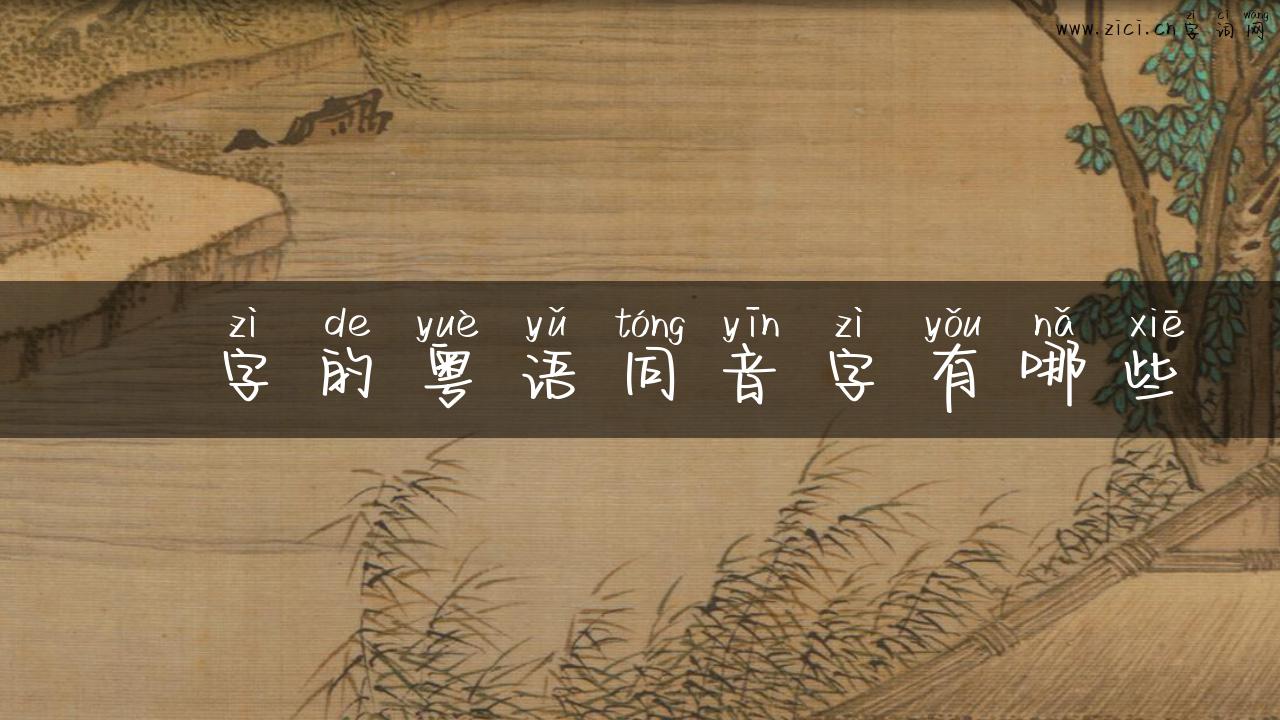 zì cí wǎng
www.zici.cn字词网
zì de yuè yǔ tóng yīn zì yǒu nǎ xiē
字的粤语同音字有哪些